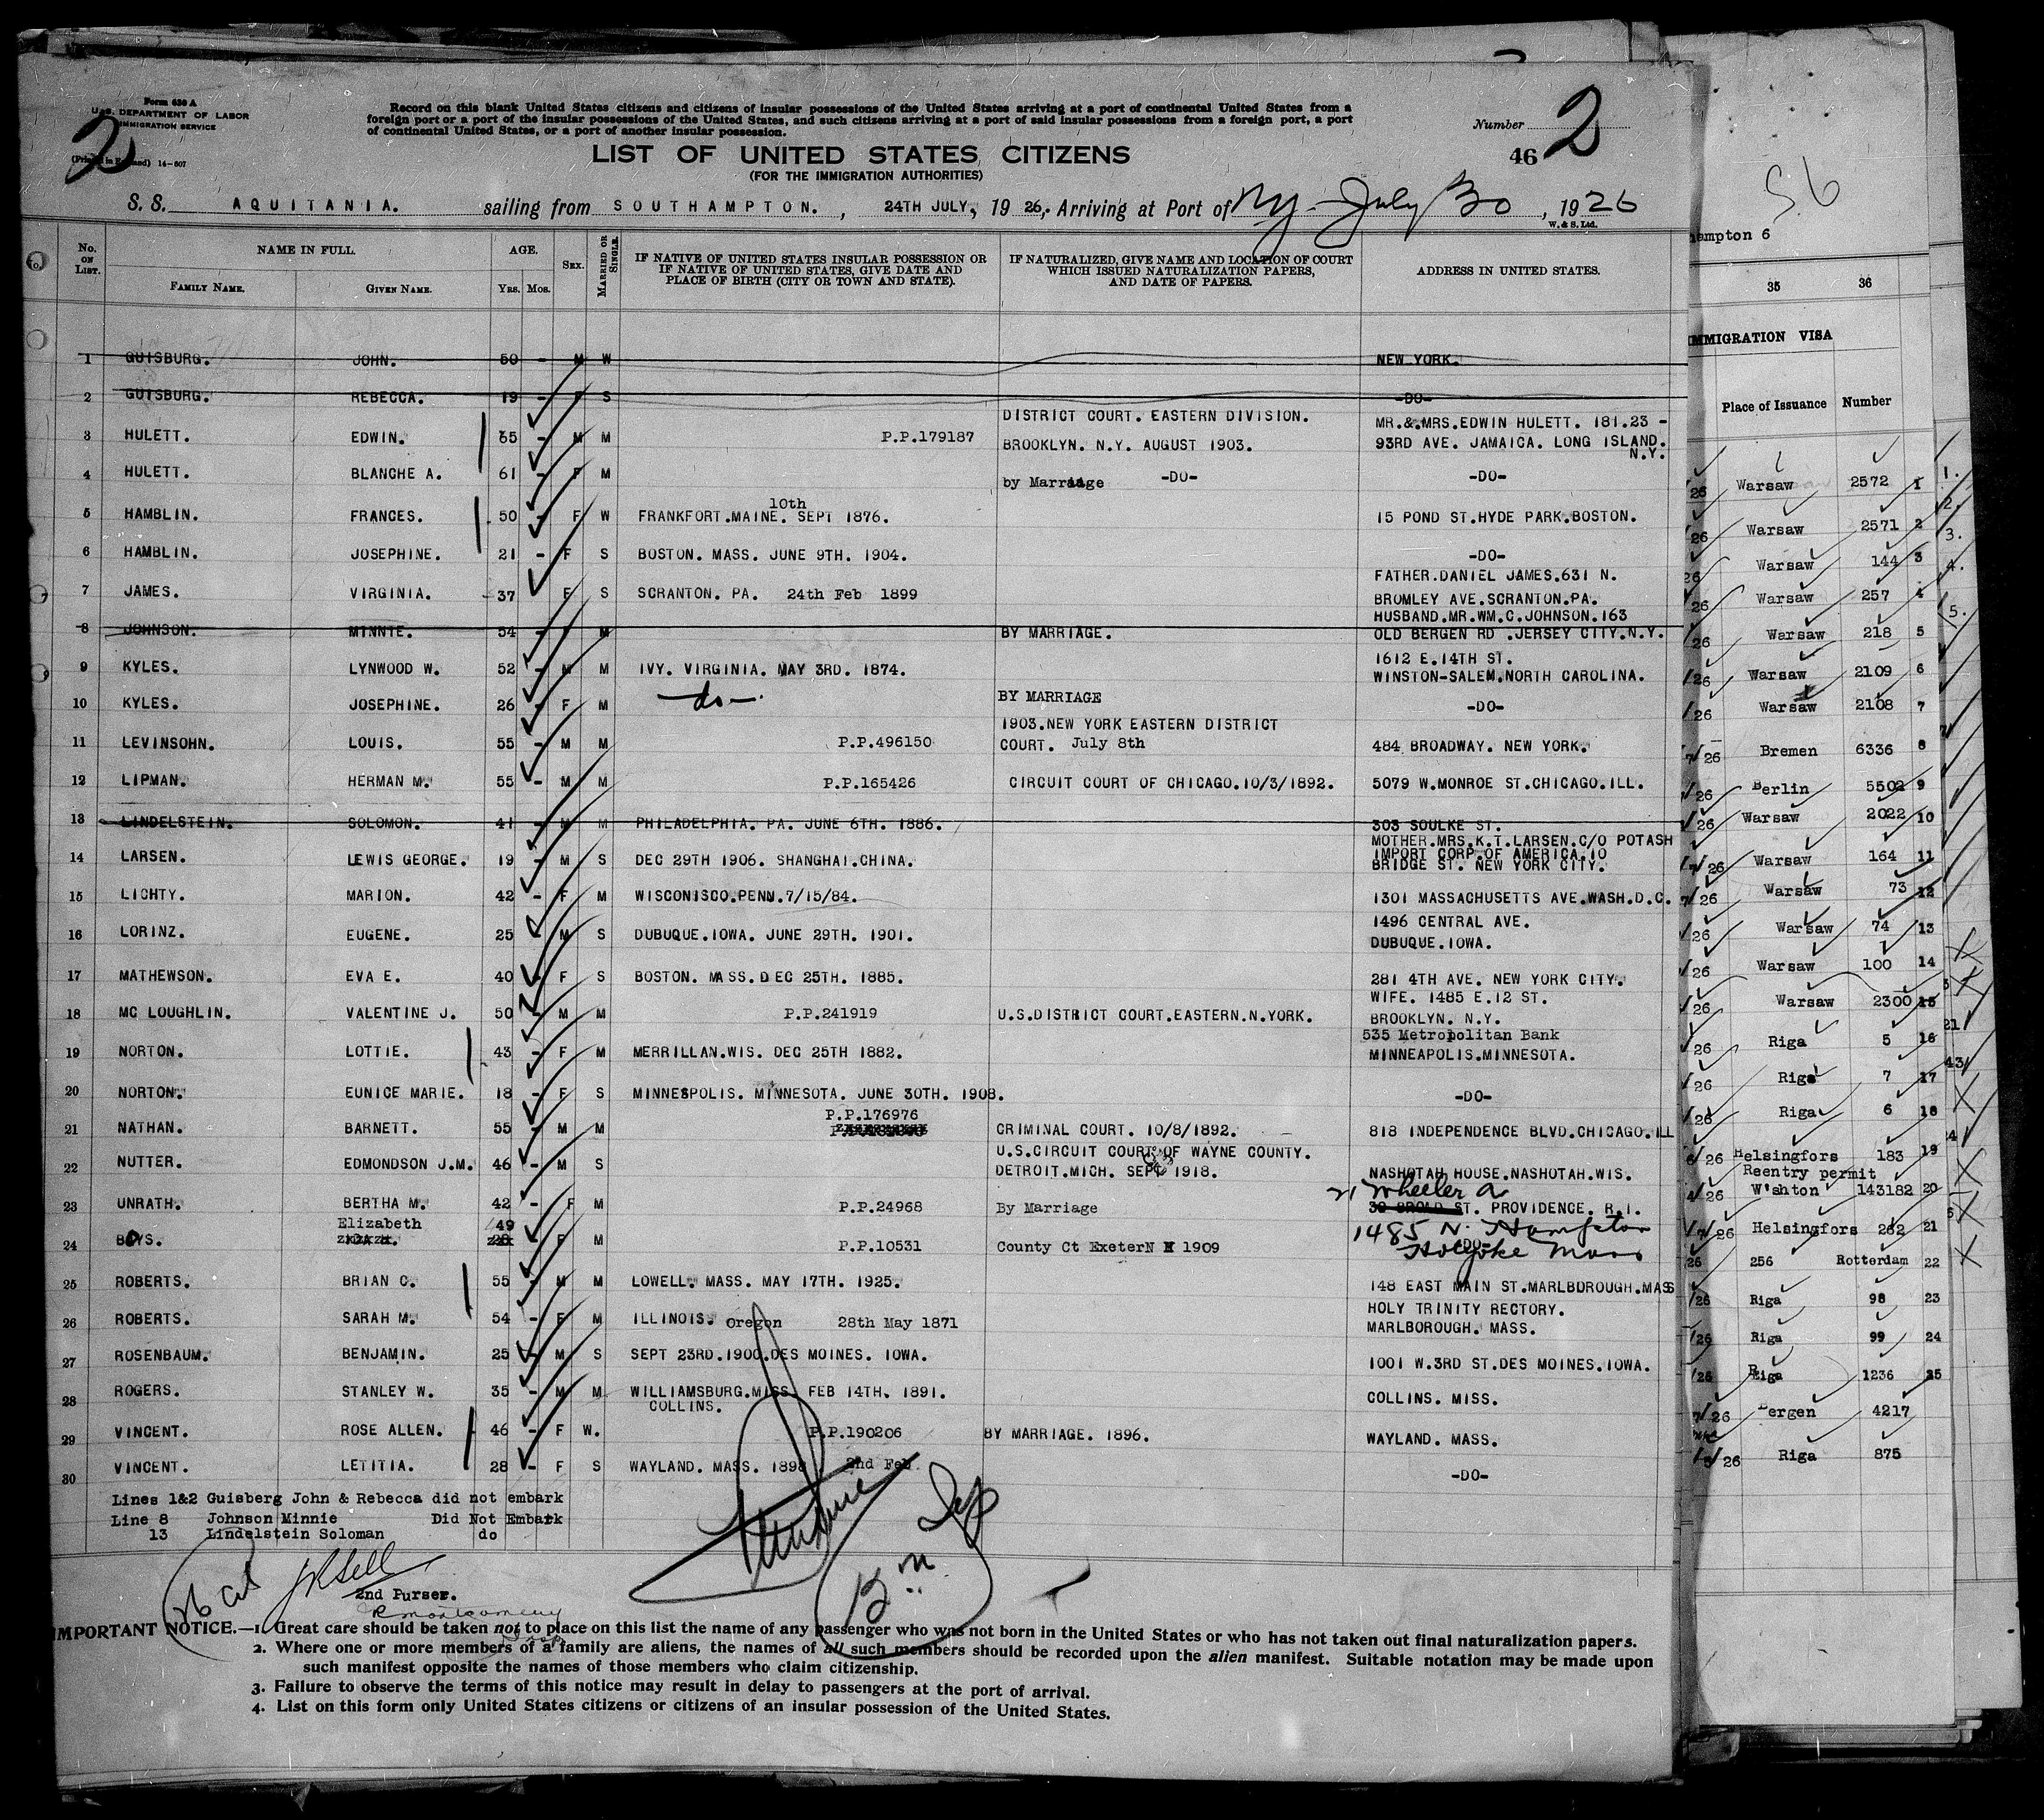 Form 630 A
U.S. DEPARTMENT OF LABOR
IMMIGRATION SERVICE
2
14-607
Record on this blank United States citizens and citizens of insular possessions of the United States arriving at a port of continental United States from a
foreign port or a port of the insular possessions of the United States, and such citizens arriving at a port of said insular possessions from a foreign port, a port
of continental United States, or a port of another insular possession.
Number 2
46
LIST OF UNITED STATES CITIZENS
(FOR THE IMMIGRATION AUTHORITIES)
S.S. AQUITANIA. sailing from SOUTHAMPTON., 24TH JULY, 1926, Arriving at Port of NY. July 30, 1926
W. & S. Ltd.
No. ON LIST. NAME IN FULL. AGE. SEX. MARRIED OR SINGLE. IF NATIVE OF UNITED STATES INSULAR POSSESSION OR IF NATIVE OF UNITED STATES, GIVE DATE AND PLACE OF BIRTH (CITY OR TOWN AND STATE). IF NATURALIZED, GIVE NAME AND LOCATION OF COURT WHICH ISSUED NATURALIZATION PAPERS, AND DATE OF PAPERS. ADDRESS IN UNITED STATES.
FAMILY NAME. GIVEN NAME. YRS. MOS.
1 GUISBURG. JOHN. 50 - M W NEW YORK.
2 GUISBURG. REBECCA. 19 - F S -DO-
3 HULETT. EDWIN. 65 - M M P.P.179187 DISTRICT COURT. EASTERN DIVISION. BROOKLYN. N.Y. AUGUST 1903. MR.&.MRS.EDWIN HULETT. 181.23 - 93RD AVE. JAMAICA. LONG ISLAND. N.Y.
4 HULETT. BLANCHE A. 61 - F M by Marriage -DO- -DO-
5 HAMBLIN. FRANCES. 50 - F W FRANKFORT.MAINE. 10th SEPT 1876. 15 POND ST.HYDE PARK.BOSTON.
6 HAMBLIN. JOSEPHINE. 21 - F S BOSTON. MASS. JUNE 9TH. 1904. -DO-
7 JAMES. VIRGINIA. 37 F S SCRANTON. PA. 24th Feb 1899 FATHER.DANIEL JAMES.631 N. BROMLEY AVE.SCRANTON.PA.
8 JOHNSON. MINNIE. 54 - F M BY MARRIAGE. HUSBAND.MR.WM.C.JOHNSON.163 OLD BERGEN RD .JERSEY CITY.N.Y.
9 KYLES. LYNWOOD W. 52 - M M IVY. VIRGINIA. MAY 3RD. 1874. 1612 E.14TH ST. WINSTON-SALEM.NORTH CAROLINA.
10 KYLES. JOSEPHINE. 26 - F M -do-. BY MARRIAGE -DO-
11 LEVINSOHN. LOUIS. 55 - M M P.P.496150 1903.NEW YORK EASTERN DISTRICT COURT. July 8th 484 BROADWAY. NEW YORK.
12 LIPMAN. HERMAN M. 55 - M M P.P.165426 CIRCUIT COURT OF CHICAGO.10/3/1892. 5079 W.MONROE ST.CHICAGO.ILL.
13 LINDELSTEIN. SOLOMON. 41 - M M PHILADELPHIA. PA. JUNE 6TH. 1886. 303 SOULKE ST.
14 LARSEN. LEWIS GEORGE. 19 - M S DEC 29TH 1906. SHANGHAI.CHINA. MOTHER.MRS.K.T.LARSEN.C/O POTASH IMPORT CORP.OF AMERICA.10 BRIDGE ST. NEW YORK CITY.
15 LICHTY. MARION. 42 - F M WISCONISCO.PENN.7/15/84. 1301 MASSACHUSETTS AVE.WASH.D.C.
16 LORINZ. EUGENE. 25 M S DUBUQUE.IOWA. JUNE 29TH. 1901. 1496 CENTRAL AVE. DUBUQUE.IOWA.
17 MATHEWSON. EVA E. 40 F S BOSTON. MASS.DEC 25TH. 1885. 281 4TH AVE. NEW YORK CITY.
18 MC LOUGHLIN. VALENTINE J. 50 - M M P.P.241919 U.S.DISTRICT COURT.EASTERN.N.YORK. WIFE. 1485 E.12 ST. BROOKLYN. N.Y.
19 NORTON. LOTTIE. 43 - F M MERRILLAN.WIS. DEC 25TH 1882. 535 Metropolitan Bank MINNEAPOLIS.MINNESOTA.
20 NORTON. EUNICE MARIE. 18 - F S MINNESPOLIS. MINNESOTA. JUNE 30TH. 1908. -DO-
21 NATHAN. BARNETT. 55 - M M P.P.176976 CRIMINAL COURT. 10/8/1892. 818 INDEPENDENCE BLVD.CHICAGO.ILL
22 NUTTER. EDMONDSON J.M. 46 - M S U.S.CIRCUIT COURT OF WAYNE COUNTY. DETROIT.MICH. SEPT 1918. NASHOTAH HOUSE.NASHOTAH.WIS.
23 UNRATH. BERTHA M. 42 - F M P.P.24968 By Marriage 21 Wheeler a 30 BROAD ST. PROVIDENCE. R.I.
24 BOYS. Elizabeth 49 F M P.P.10531 County Ct ExeterN H 1909 -DO- 1485 N. Hampton Holyoke Mass
25 ROBERTS. BRIAN C. 55 - M M LOWELL. MASS. MAY 17TH. 1925. 148 EAST MAIN ST.MARLBOROUGH.MASS
26 ROBERTS. SARAH M. 54 - F M ILLINOIS. Oregon 28th May 1871 HOLY TRINITY RECTORY. MARLBOROUGH. MASS.
27 ROSENBAUM. BENJAMIN. 25 - M S SEPT 23RD.1900.DES MOINES. IOWA. 1001 W.3RD ST.DES MOINES.IOWA.
28 ROGERS. STANLEY W. 35 - M M WILLIAMSBURG.MISS. FEB 14TH. 1891. COLLINS. COLLINS. MISS.
29 VINCENT. ROSE ALLEN. 46 - F W. P.P.190206 BY MARRIAGE. 1896. WAYLAND. MASS.
30 VINCENT. LETITIA. 28 - F S WAYLAND. MASS. 1898 2nd Feb -DO-
Lines 1&2 Guisberg John & Rebecca did not embark
Line 8 Johnson Minnie Did Not Embark
13 Lindelstein Soloman do
2nd Purser.
R Montgomery
IMPORTANT NOTICE.—1. Great care should be taken not to place on this list the name of any passenger who was not born in the United States or who has not taken out final naturalization papers.
2. Where one or more members of a family are aliens, the names of all such members should be recorded upon the alien manifest. Suitable notation may be made upon
such manifest opposite the names of those members who claim citizenship.
3. Failure to observe the terms of this notice may result in delay to passengers at the port of arrival.
4. List on this form only United States citizens or citizens of an insular possession of the United States.
S6
hampton 6
35 36
IMMIGRATION VISA
Place of Issuance Number
26 Warsaw 2572 1
26 Warsaw 2571 2
26 Warsaw 144 3
26 Warsaw 257 4
26 Warsaw 218 5
26 Warsaw 2109 6
26 Warsaw 2108 7
26 Bremen 6336 8
26 Berlin 5502 9
26 Warsaw 2022 10
26 Warsaw 164 11
26 Warsaw 73 12
26 Warsaw 74 13
26 Warsaw 100 14
26 Warsaw 2300 15
26 Riga 5 16
26 Riga 7 17
26 Riga 6 18
26 Helsingfors 183 19
Reentry permit
26 W'shton 143182 20
26 Helsingfors 262 21
26 256 Rotterdam 22
26 Riga 98 23
26 Riga 99 24
26 Riga 1236 25
26 Bergen 4217
26 Riga 875
1.
2.
3.
4.
5.